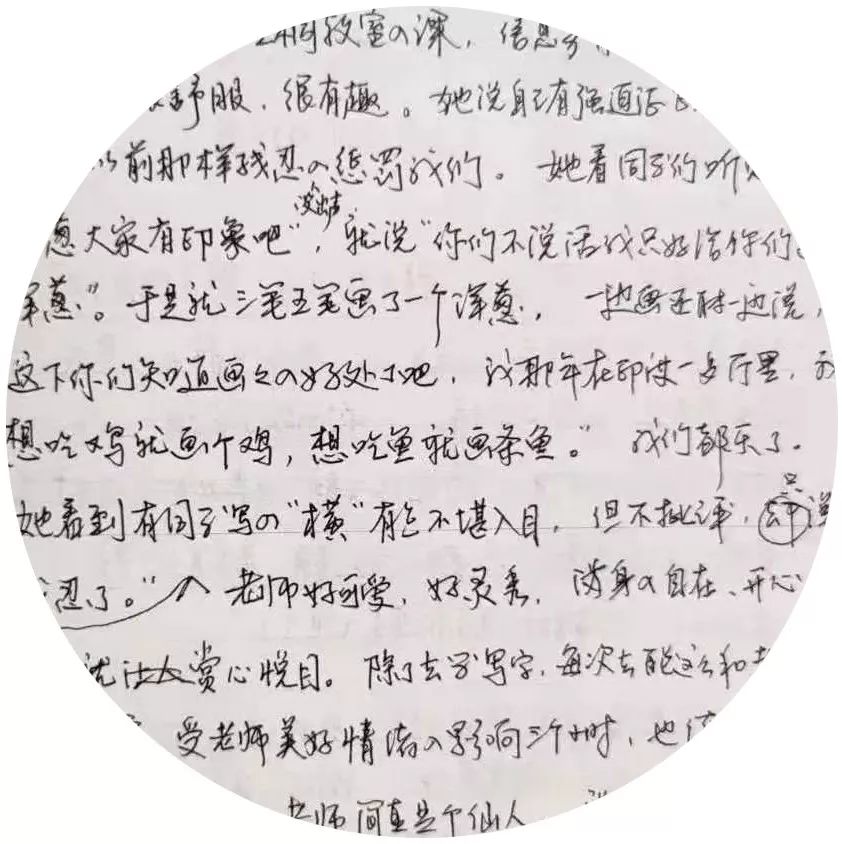 教室的课，信息
舒服，很有趣。她说自己有强迫症
以前那样残忍的惩罚我们。她看同学们听
没啥
葱大家有印象吧"，就说"你们不说话我只好给你们
洋葱"。于是就三笔五笔画了一个洋葱，一边画还时一边说，
这下你们知道画画的好处了吧，我那年在印度一岛厅里，
想吃鸡就画个鸡，想吃鱼就画条鱼。"我们都乐了。
只
她看到有同学写的"横"有些不堪入目，但不批评，
忍了。"老师好可爱，好灵秀，满身的自在、开心
就让人赏心悦目。除了去学写字，每次去能这么和
受老师美好情绪的影响三个小时，也
老师简直是个仙人